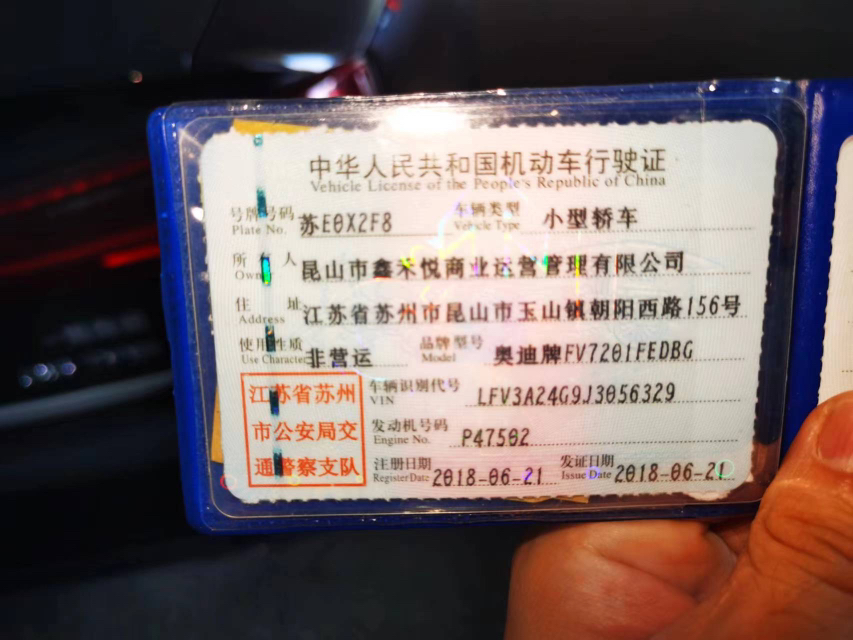 中华人民共和国机动车行驶证
Vehicle License of the People's Republic of China
号牌号码 苏E0X2F8 车辆类型 小型轿车
Plate No. Vehicle Type
所有人 昆山市鑫禾悦商业运营管理有限公司
Owner
住址 江苏省苏州市昆山市玉山镇朝阳西路156号
Address
使用性质 非营运 品牌型号 奥迪牌FV7201FEDBG
Use Character Model
江苏省苏州
市公安局交
通警察支队
车辆识别代号 LFV3A24G9J3056329
VIN
发动机号码 P47502
Engine No.
注册日期 2018-06-21 发证日期 2018-06-21
Register Date Issue Date